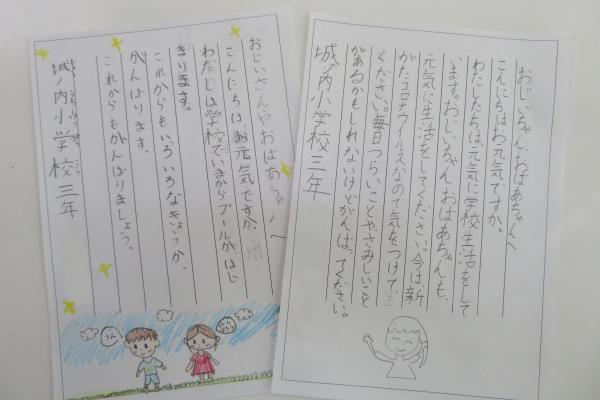 おじいさんやおばあちゃんへ
こんにちは。お元気ですか。
わたしは学校でいまからプールがはじ
まります。
これからもいろいろなきょうか、
がんばります。
これからもがんばりましょう。
城ノ内小学校三年
うん
おじいちゃん、おばあちゃんへ
こんにちは。お元気ですか。
わたしたちは、元気に学校生活をして
います。おじいちゃん、おばあちゃんも、
元気に生活をしてください。今は新
がたコロナウイルスなので気をつけて
ください。毎日つらいことや、さみしいこと
があるかもしれないけどがんばってください。
城ノ内小学校三年